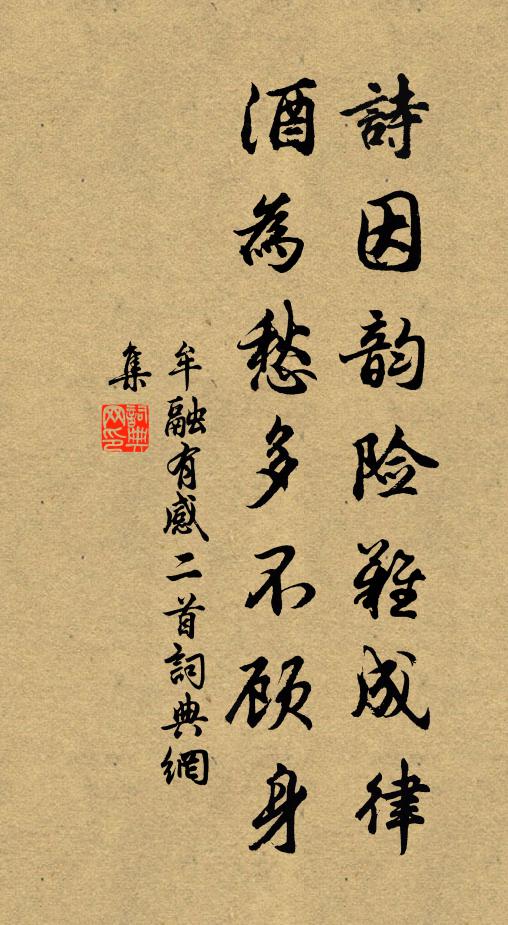 詩因韵险難成律
酒為愁多不顾身
牟融有感二首詞典網
集
詞典网印